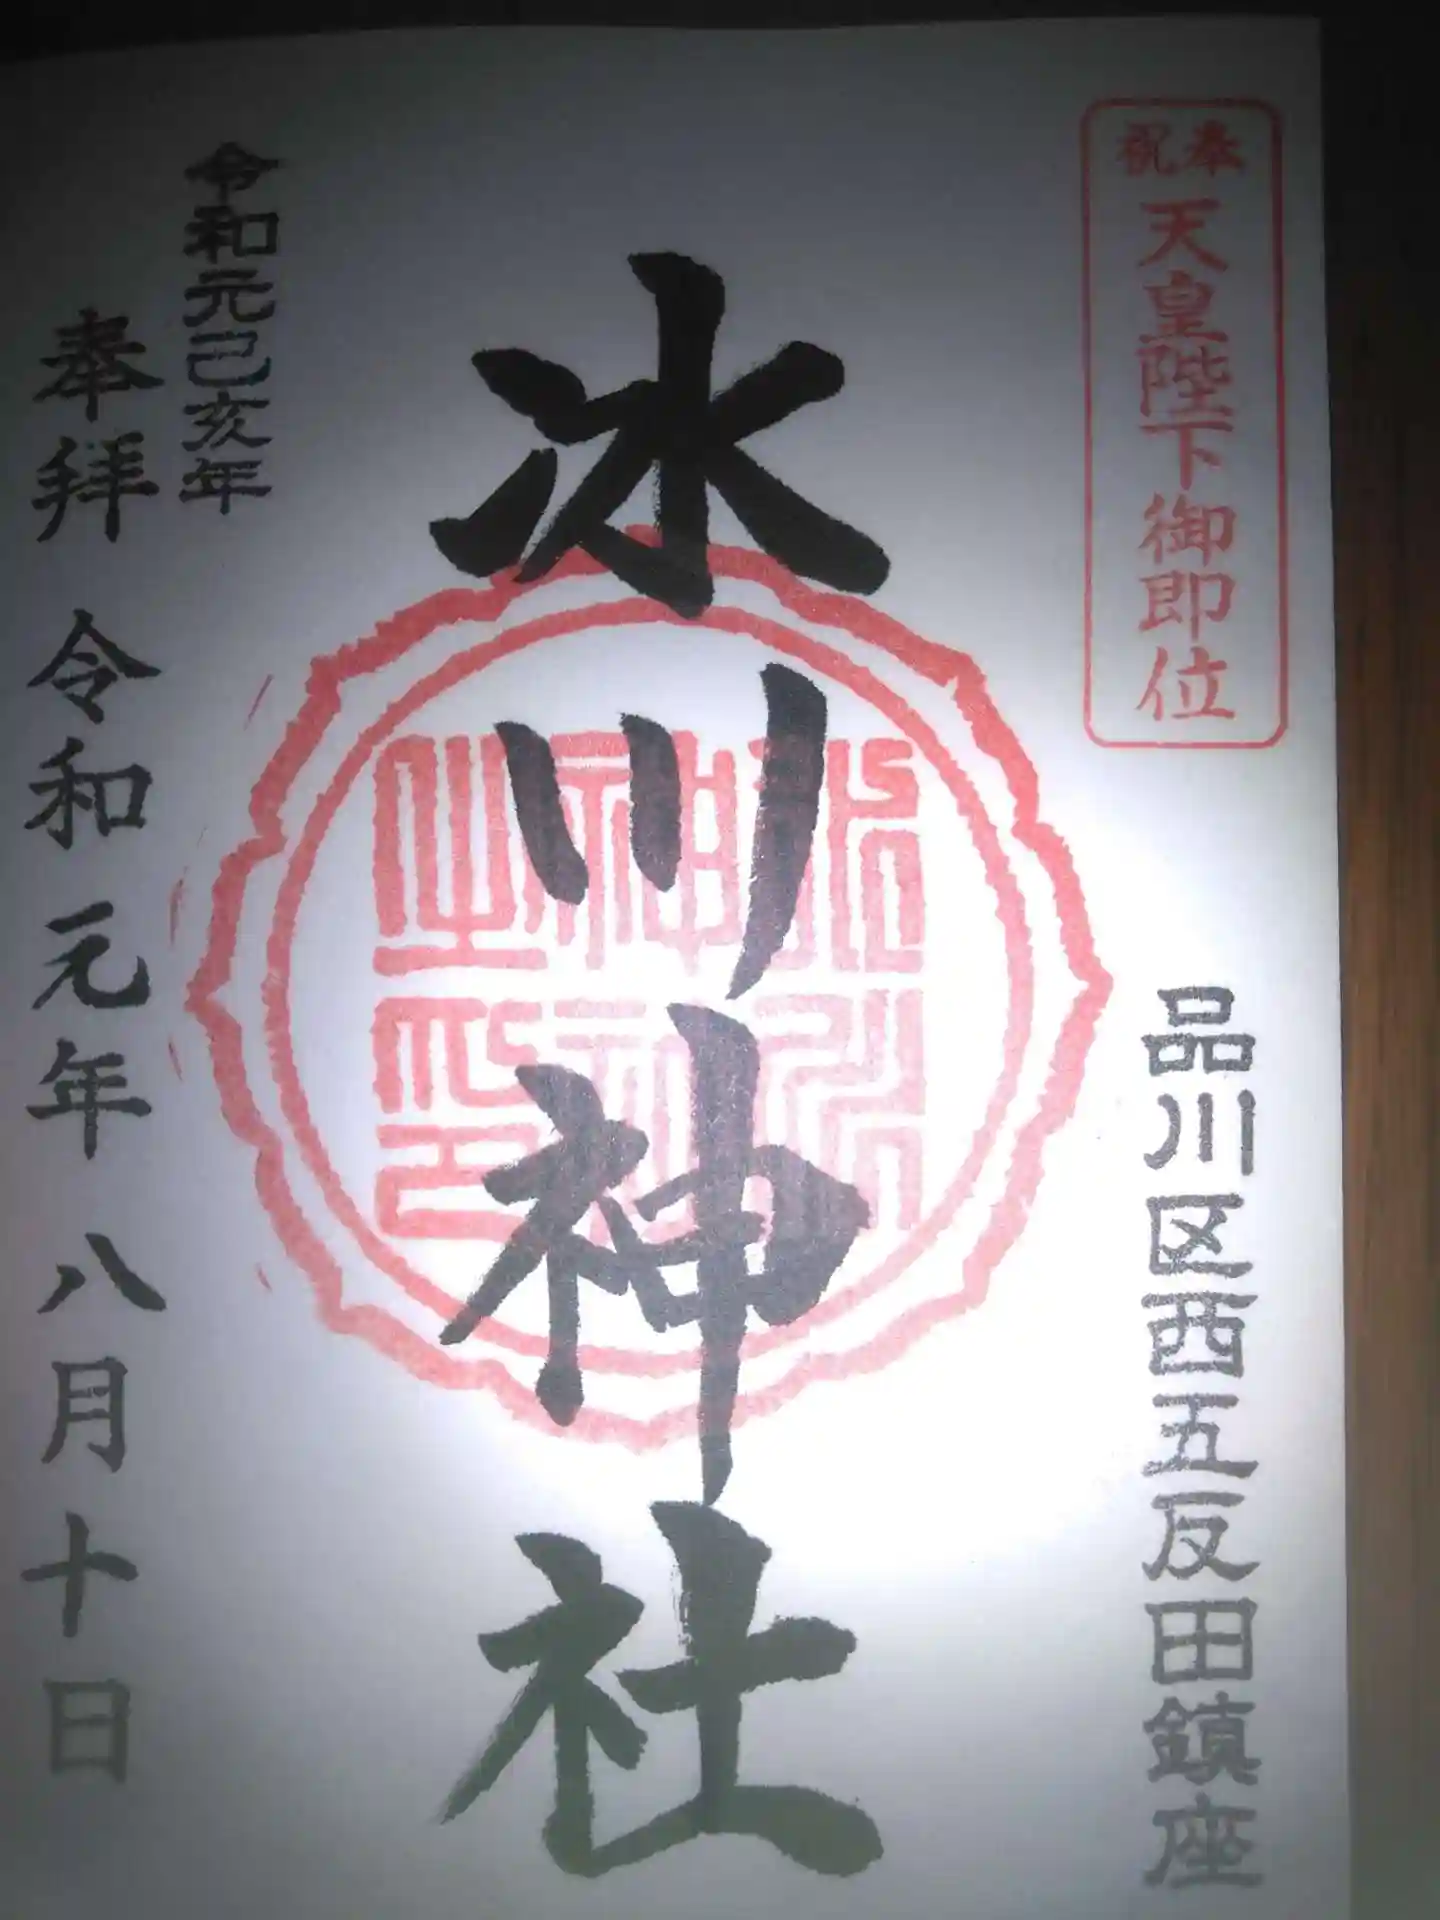 奉祝
天皇陛下御即位
品川区西五反田鎮座
氷川神社
氷川神社之印
令和元己亥年
奉拝 令和元年八月十日